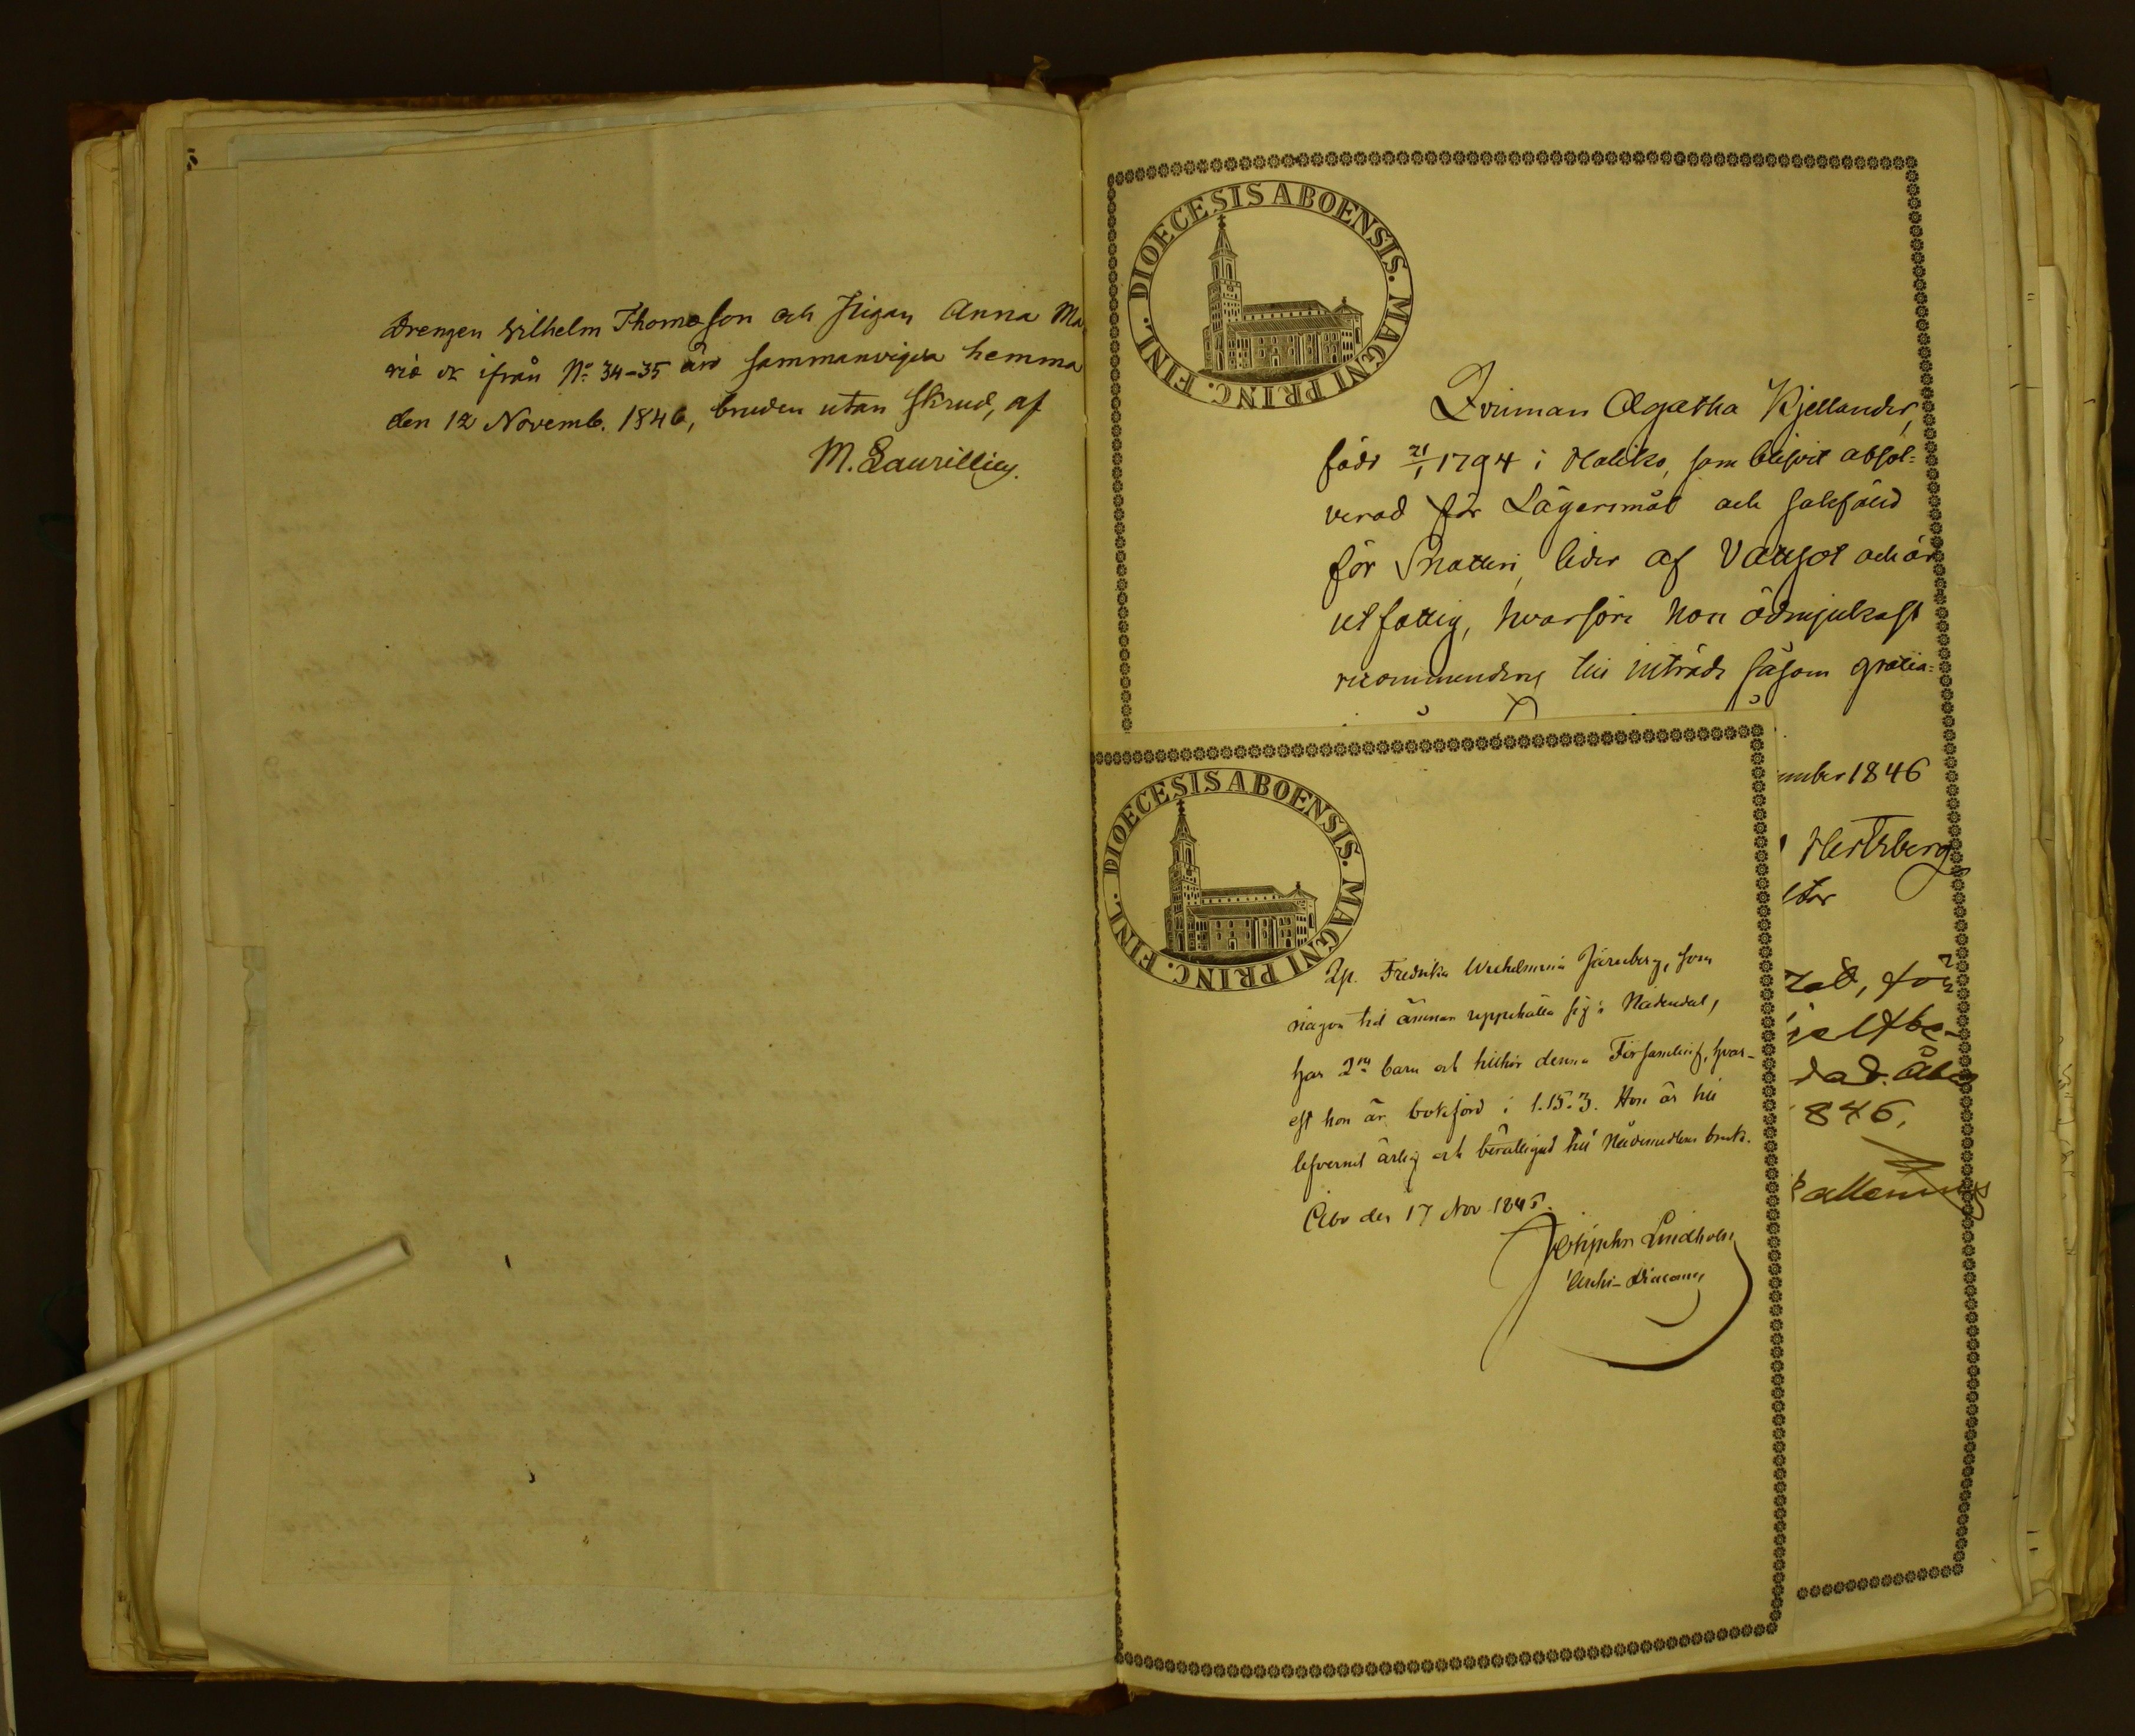 Drengen Wilhelm Thomasson och Pigan Anna Ma
ria ifrån No 34-35 äro sammanvigda hemma
den 12 Novemb. 1846, bruden utan skrud, af
M. Laurillius.
DIOECESIS ABOENSIS. MAGNI PRINC. FINL.
Qvinnan Agatha Kjellander,
född 21/1 1794 i Haliko, som blifvit absol=
verad för Lägersmål och sakfäld
för Snatteri, lider af Vattsot och är
utfattig, hvarföre hon ödmjukast
recommenderas till inträde såsom gratia-
mber 1846
Hertzberg
dad. Åbo
846.
DIOECESIS ABOENSIS. MAGNI PRINC. FINL.
Qp. Fredrika Wilhelmina Järnberg, som
någon tid ämnar uppehålla sig i Nådendal,
har 2ne barn och tillhör denna Församling, hvar-
est hon är bokförd i 1.15.3. Hon är till
lefvernet ärlig och berättigad till Nådemedlens bruk.
Åbo den 17 Nov 1845.
Lindholm
Archi-Diaconus